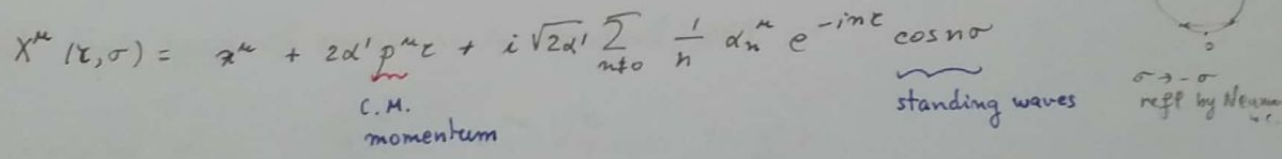 X^μ (τ,σ) = x^μ + 2α' p^μ τ + i √2α' ∑_{n≠0} 1/n α_n^μ e^{-inτ} cos nσ
C.M.
momentum
standing waves
σ → -σ
refl by